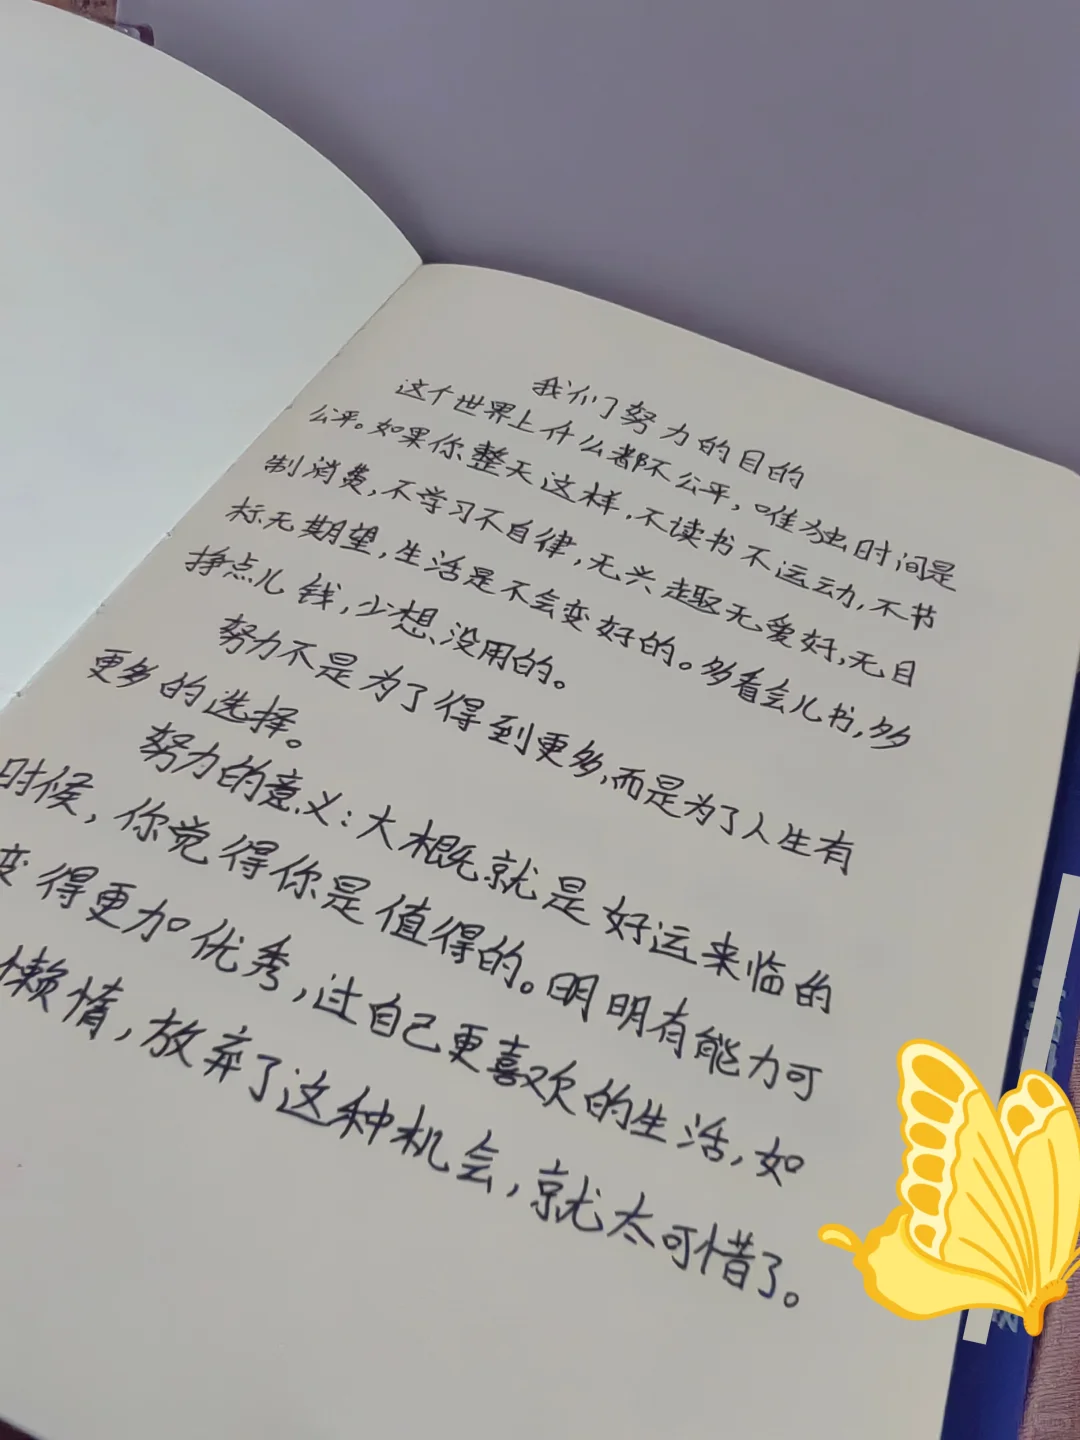 我们努力的目的
这个世界上什么都不公平，唯独时间是
公平。如果你整天这样，不读书不运动，不节
制消费，不学习不自律，无兴趣无爱好，无目
标无期望，生活是不会变好的。多看会儿书，多
挣点儿钱，少想没用的。
努力不是为了得到更多，而是为了人生有
更多的选择。
努力的意义：大概就是好运来临的
时候，你觉得你是值得的。明明有能力可
变得更加优秀，过自己更喜欢的生活，如
懒惰，放弃了这种机会，就太可惜了。